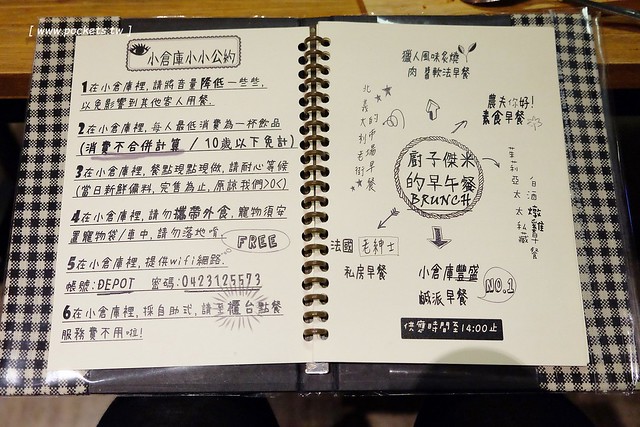 [ www.pockets.tw ]
小倉庫小小公約
1 在小倉庫裡,請將音量降低一些些,
以免影響到其他客人用餐.
2 在小倉庫裡,每人最低消費為一杯飲品
(消費不合併計算 / 10歲以下免計)
3 在小倉庫裡,餐點現點現做,請耐心等候
(當日新鮮備料,完售為止,原諒我們>O<)
4 在小倉庫裡,請勿攜帶外食,寵物須安
置寵物袋/車中,請勿落地唷.
FREE
5 在小倉庫裡,提供wifi網路.
帳號:DEPOT 密碼:0423125573
6 在小倉庫裡,採自助式,請至櫃台點餐
服務費不用啦!
獵人風味炙燒
肉醬軟法早餐
農夫你好!
素食早餐
北義大利老街
的市場早餐
廚子傑米
的早午餐
BRUNCH
茱莉亞太太私藏
白酒燉雞早餐
法國 老紳士
私房早餐
小倉庫豐盛
鹹派早餐
NO.1
供應時間至14:00止